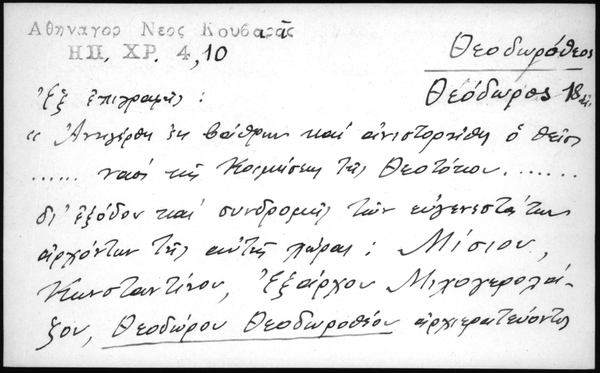 Αθηναγορ Νεος Κουβαρᾶς
ΗΠ. ΧΡ. 4,10
Θεοδωρόθεος
Θεόδωρος 18
Ἐξ ἐπιγραφῆς :
« Ἀνηγέρθη ἐκ βάθρων καὶ ἀνιστορήθη ὁ θεῖος
...... ναὸς τῆς Κοιμήσεως τῆς Θεοτόκου .......
δι' ἐξόδου καὶ συνδρομῆς τῶν εὐγενεστάτων
ἀρχόντων τῆς αὐτῆς χώρας : Μίσιου,
Κωνσταντίνου, Ἐξάρχου
Θεοδώρου Θεοδωροθέου ἀρχιερατεύοντος